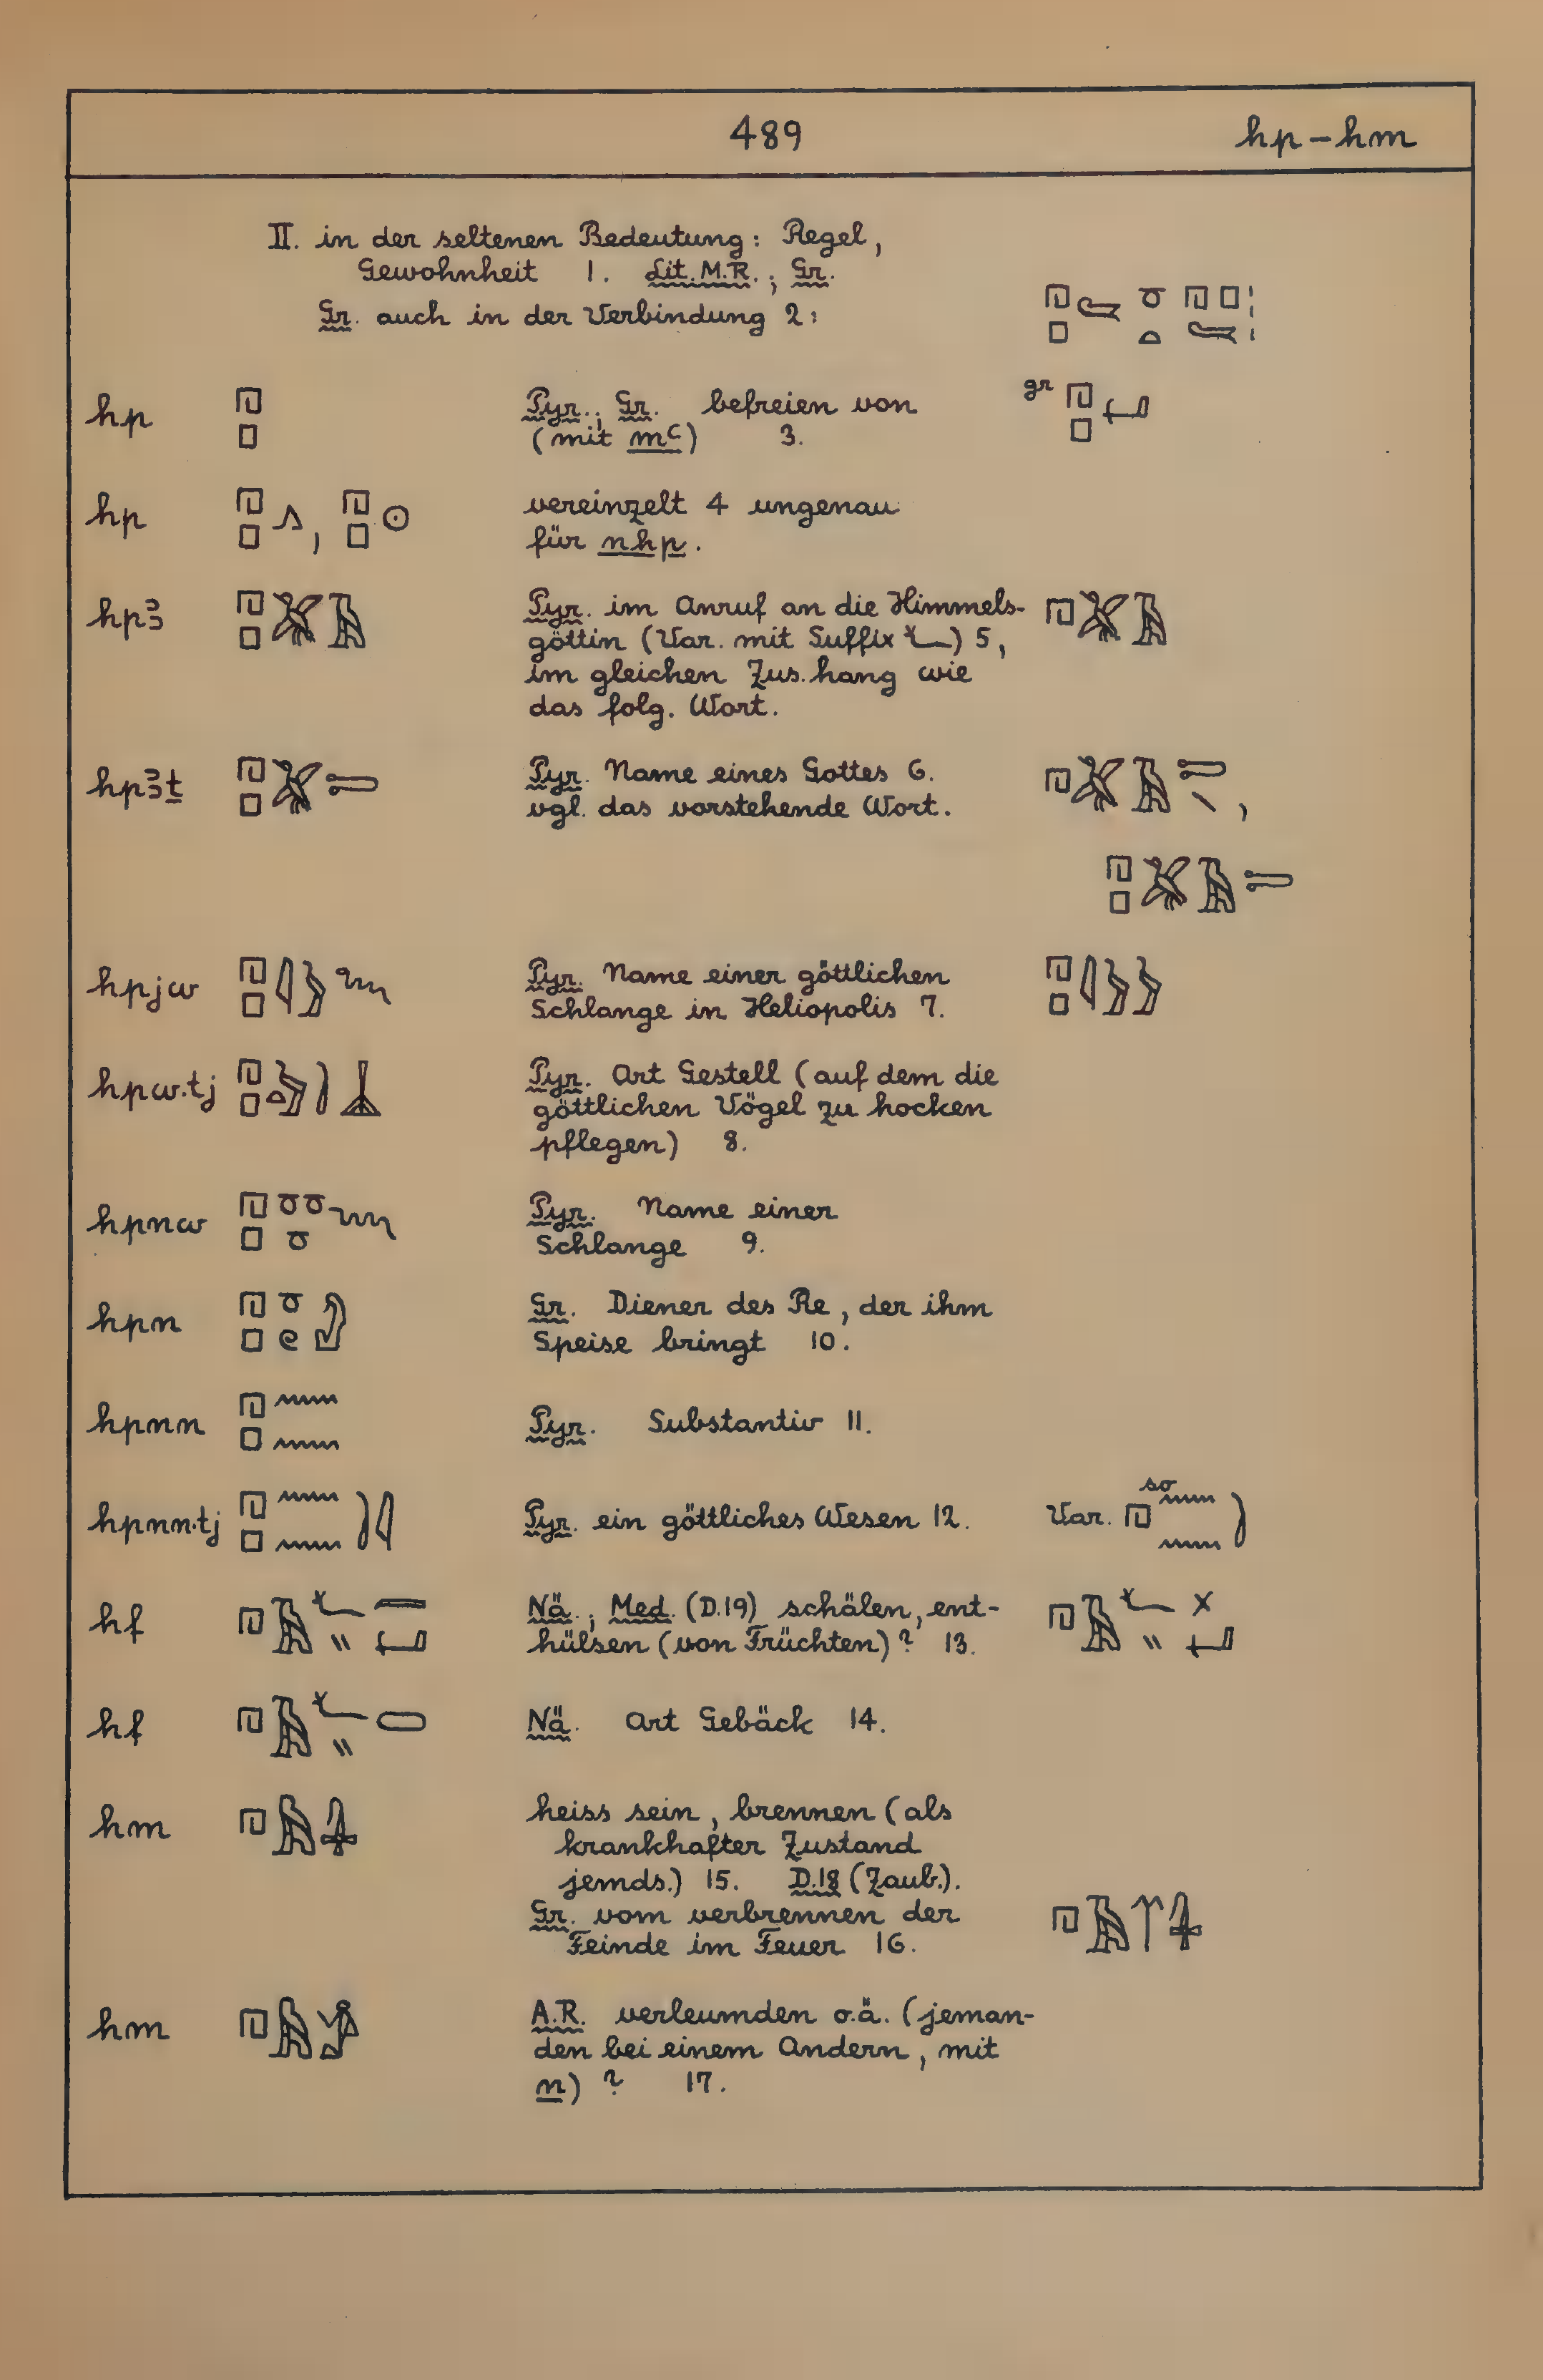 489 hp – hm
II. in der seltenen Bedeutung: Regel,
Gewohnheit 1. Lit. M.R.; Gr.
Gr. auch in der Verbindung 2:
hp Pyr.; Gr. befreien von gr
(mit mꜥ) 3.
hp , vereinzelt 4 ungenau
für nhp.
hpꜣ Pyr. im Anruf an die Himmels-
göttin (Var. mit Suffix 𓆑) 5,
im gleichen Zus.hang wie
das folg. Wort.
hpꜣṯ Pyr. Name eines Gottes 6. ,
vgl. das vorstehende Wort.
hpjw Pyr. Name einer göttlichen
Schlange in Heliopolis 7.
hpw.tj Pyr. Art Gestell (auf dem die
göttlichen Vögel zu hocken
pflegen) 8.
hpnw Pyr. Name einer
Schlange 9.
hpn Gr. Diener des Re, der ihm
Speise bringt 10.
hpnn Pyr. Substantiv 11.
hpnn.tj Pyr. ein göttliches Wesen 12. Var. so
hf Nä.; Med. (D.19) schälen, ent-
hülsen (von Früchten)? 13.
hf Nä. Art Gebäck 14.
hm heiss sein, brennen (als
krankhafter Zustand
jemds.) 15. D.18 (Zaub.).
Gr. vom verbrennen der
Feinde im Feuer 16.
hm A.R. verleumden o.ä. (jeman-
den bei einem Andern, mit
n) ? 17.